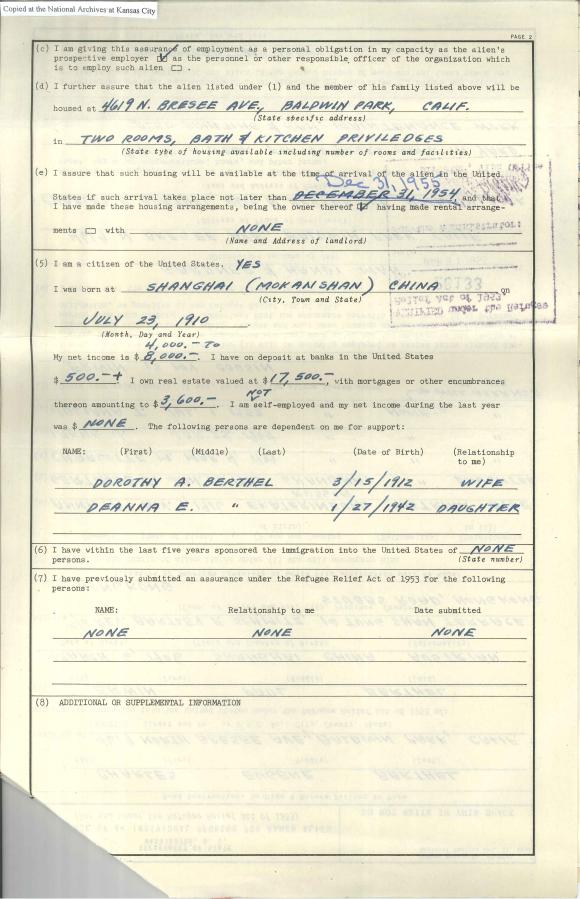 Copied at the National Archives at Kansas City
PAGE 2
(c) I am giving this assurance of employment as a personal obligation in my capacity as the alien's
prospective employer as the personnel or other responsible officer of the organization which
is to employ such alien .
(d) I further assure that the alien listed under (1) and the member of his family listed above will be
housed at 4619 N. BRESEE AVE., BALDWIN PARK, CALIF.
(State specific address)
in TWO ROOMS, BATH & KITCHEN PRIVILEDGES
(State type of housing available including number of rooms and facilities)
(e) I assure that such housing will be available at the time of arrival of the alien in the United
Dec 31, 1955
States if such arrival takes place not later than DECEMBER 31, 1954, and that
I have made these housing arrangements, being the owner thereof having made rental arrange-
ments with NONE
(Name and Address of landlord)
(5) I am a citizen of the United States. YES
I was born at SHANGHAI (MOKANSHAN) CHINA on
(City, Town and State)
JULY 23, 1910
(Month, Day and Year)
4,000.- TO
My net income is $ 8,000.-. I have on deposit at banks in the United States
$ 500.-+ I own real estate valued at $17,500.-, with mortgages or other encumbrances
NOT
thereon amounting to $3,600.- I am self-employed and my net income during the last year
was $ NONE. The following persons are dependent on me for support:
NAME: (First) (Middle) (Last) (Date of Birth) (Relationship
to me)
DOROTHY A. BERTHEL 3/15/1912 WIFE
DEANNA E. " 1/27/1942 DAUGHTER
(6) I have within the last five years sponsored the immigration into the United States of NONE
persons. (State number)
(7) I have previously submitted an assurance under the Refugee Relief Act of 1953 for the following
persons:
NAME: Relationship to me Date submitted
NONE NONE NONE
(8) ADDITIONAL OR SUPPLEMENTAL INFORMATION